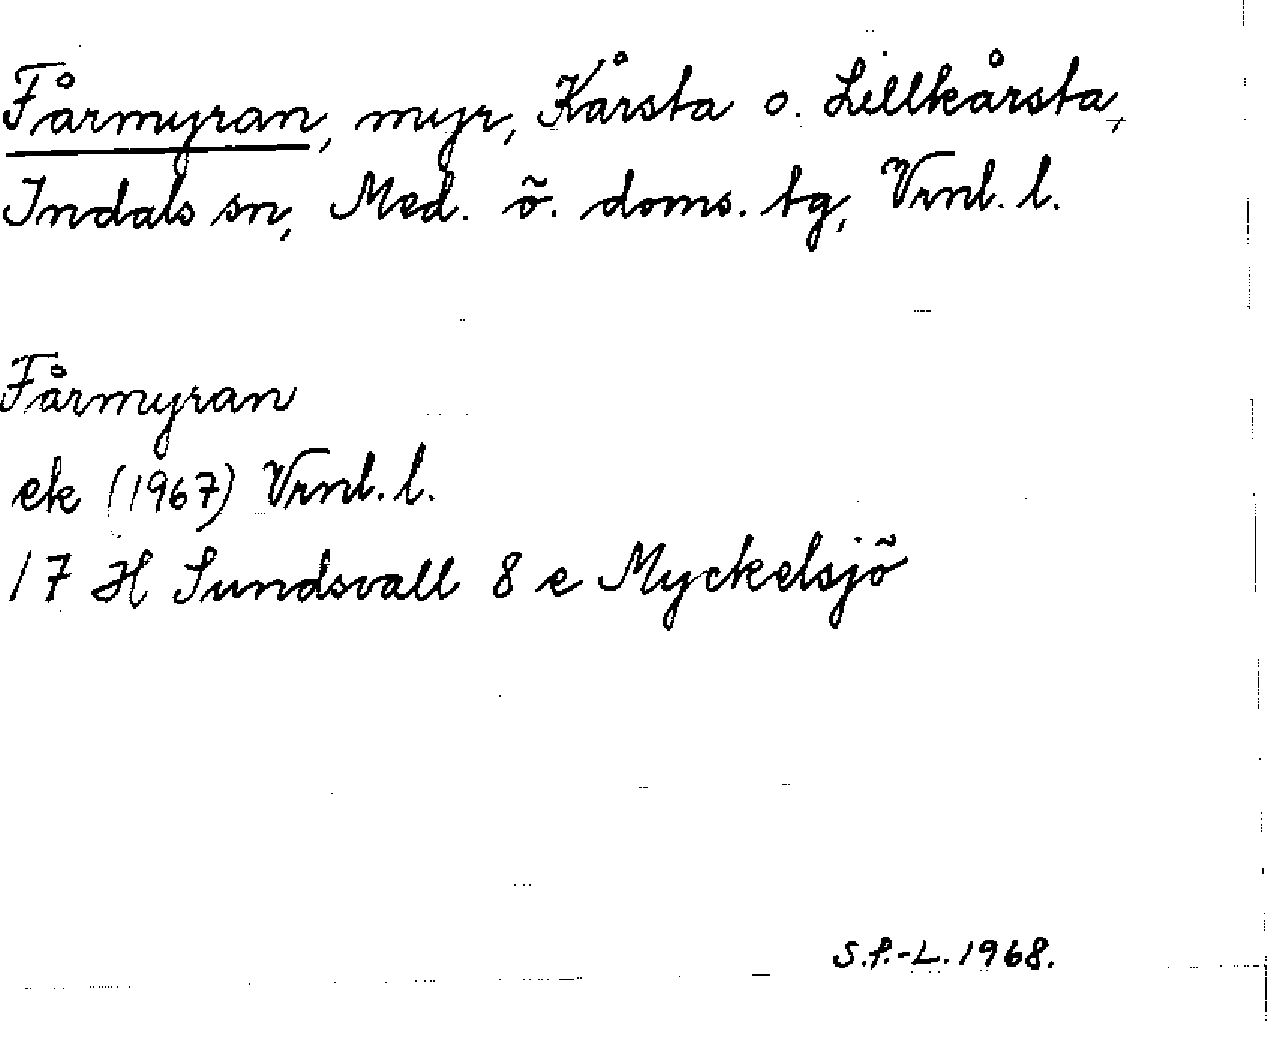 Fårmyran, myr, Kårsta o. Lillkårsta,
Indals sn, Med. ö. doms. tg, Vrnl. l.
Fårmyran
ek (1967) Vrnl. l.
17 H Sundsvall 8 e Myckelsjö
S.P.-L. 1968.